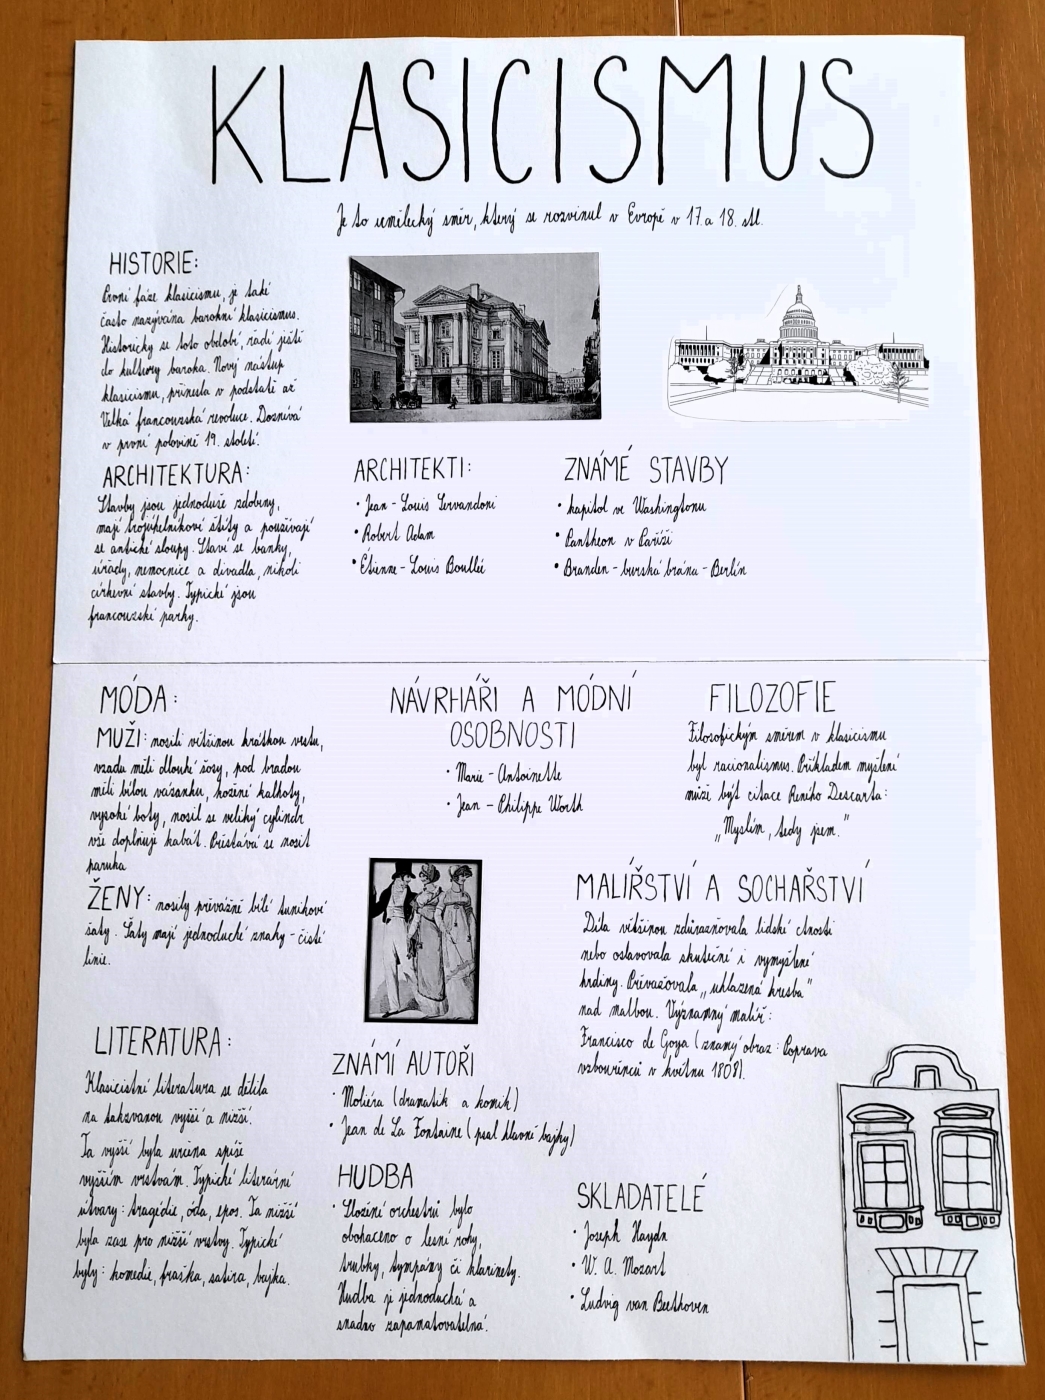 KLASICISMUS
Je to umělecký směr, který se rozvinul v Evropě v 17. a 18. stl.
HISTORIE:
První fáze klasicismu, je také
často nazývána barokní klasicismus.
Historicky se toto období, řadí ještě
do kultury baroka. Nový nástup
klasicismu, přinesla v podstatě až
Velká francouzská revoluce. Doznívá
v první polovině 19. století.
ARCHITEKTURA:
Stavby jsou jednoduše zdobeny,
mají trojúhelníkové štíty a používají
se antické sloupy. Staví se banky,
úřady, nemocnice a divadla, nikoli
církevní stavby. Typické jsou
francouzské parky.
ARCHITEKTI:
• Jean-Louis Servandoni
• Robert Adam
• Étienne-Louis Boullée
ZNÁMÉ STAVBY
• kapitol ve Washingtonu
• Pantheon v Paříži
• Branden-burská brána-Berlín
MÓDA:
MUŽI: nosili většinou krátkou vestu,
vzadu měli dlouhé šosy, pod bradou
měli bílou vázanku, kožené kalhoty,
vysoké boty, nosil se veliký cylindr
vše doplňuje kabát. Přestává se nosit
paruka
ŽENY: nosily převážně bílé tunikové
šaty. Šaty mají jednoduché znaky - čisté
linie.
NÁVRHÁŘI A MÓDNÍ
OSOBNOSTI
• Marie-Antoinette
• Jean-Philippe Worth
FILOZOFIE
Filosofickým směrem v klasicismu
byl racionalismus. Příkladem myšlení
může být citace Reného Descarta:
„Myslím, tedy jsem."
MALÍŘSTVÍ A SOCHAŘSTVÍ
Díla většinou zdůrazňovala lidské ctnosti
nebo oslavovala skutečné i vymyšlené
hrdiny. Převažovala „uhlazená kresba"
nad malbou. Významný malíř:
Francisco de Goya (známý obraz: Poprava
vzbouřenců v květnu 1808).
LITERATURA:
Klasicistní literatura se dělila
na takzvanou vyšší a nižší.
Ta vyšší byla určena spíše
vyšším vrstvám. Typické literární
útvary: tragédie, óda, epos. Ta nižší
byla zase pro nižší vrstvy. Typické
byly: komedie, fraška, satira, bajka.
ZNÁMÍ AUTOŘI
• Moliéra (dramatik a komik)
• Jean de La Fontaine (psal hlavně bajky)
HUDBA
• Složení orchestru bylo
obohaceno o lesní rohy,
trubky, tympány či klarinety.
Hudba je jednoduchá a
snadno zapamatovatelná.
SKLADATELÉ
• Joseph Haydn
• W. A. Mozart
• Ludvig van Beethoven